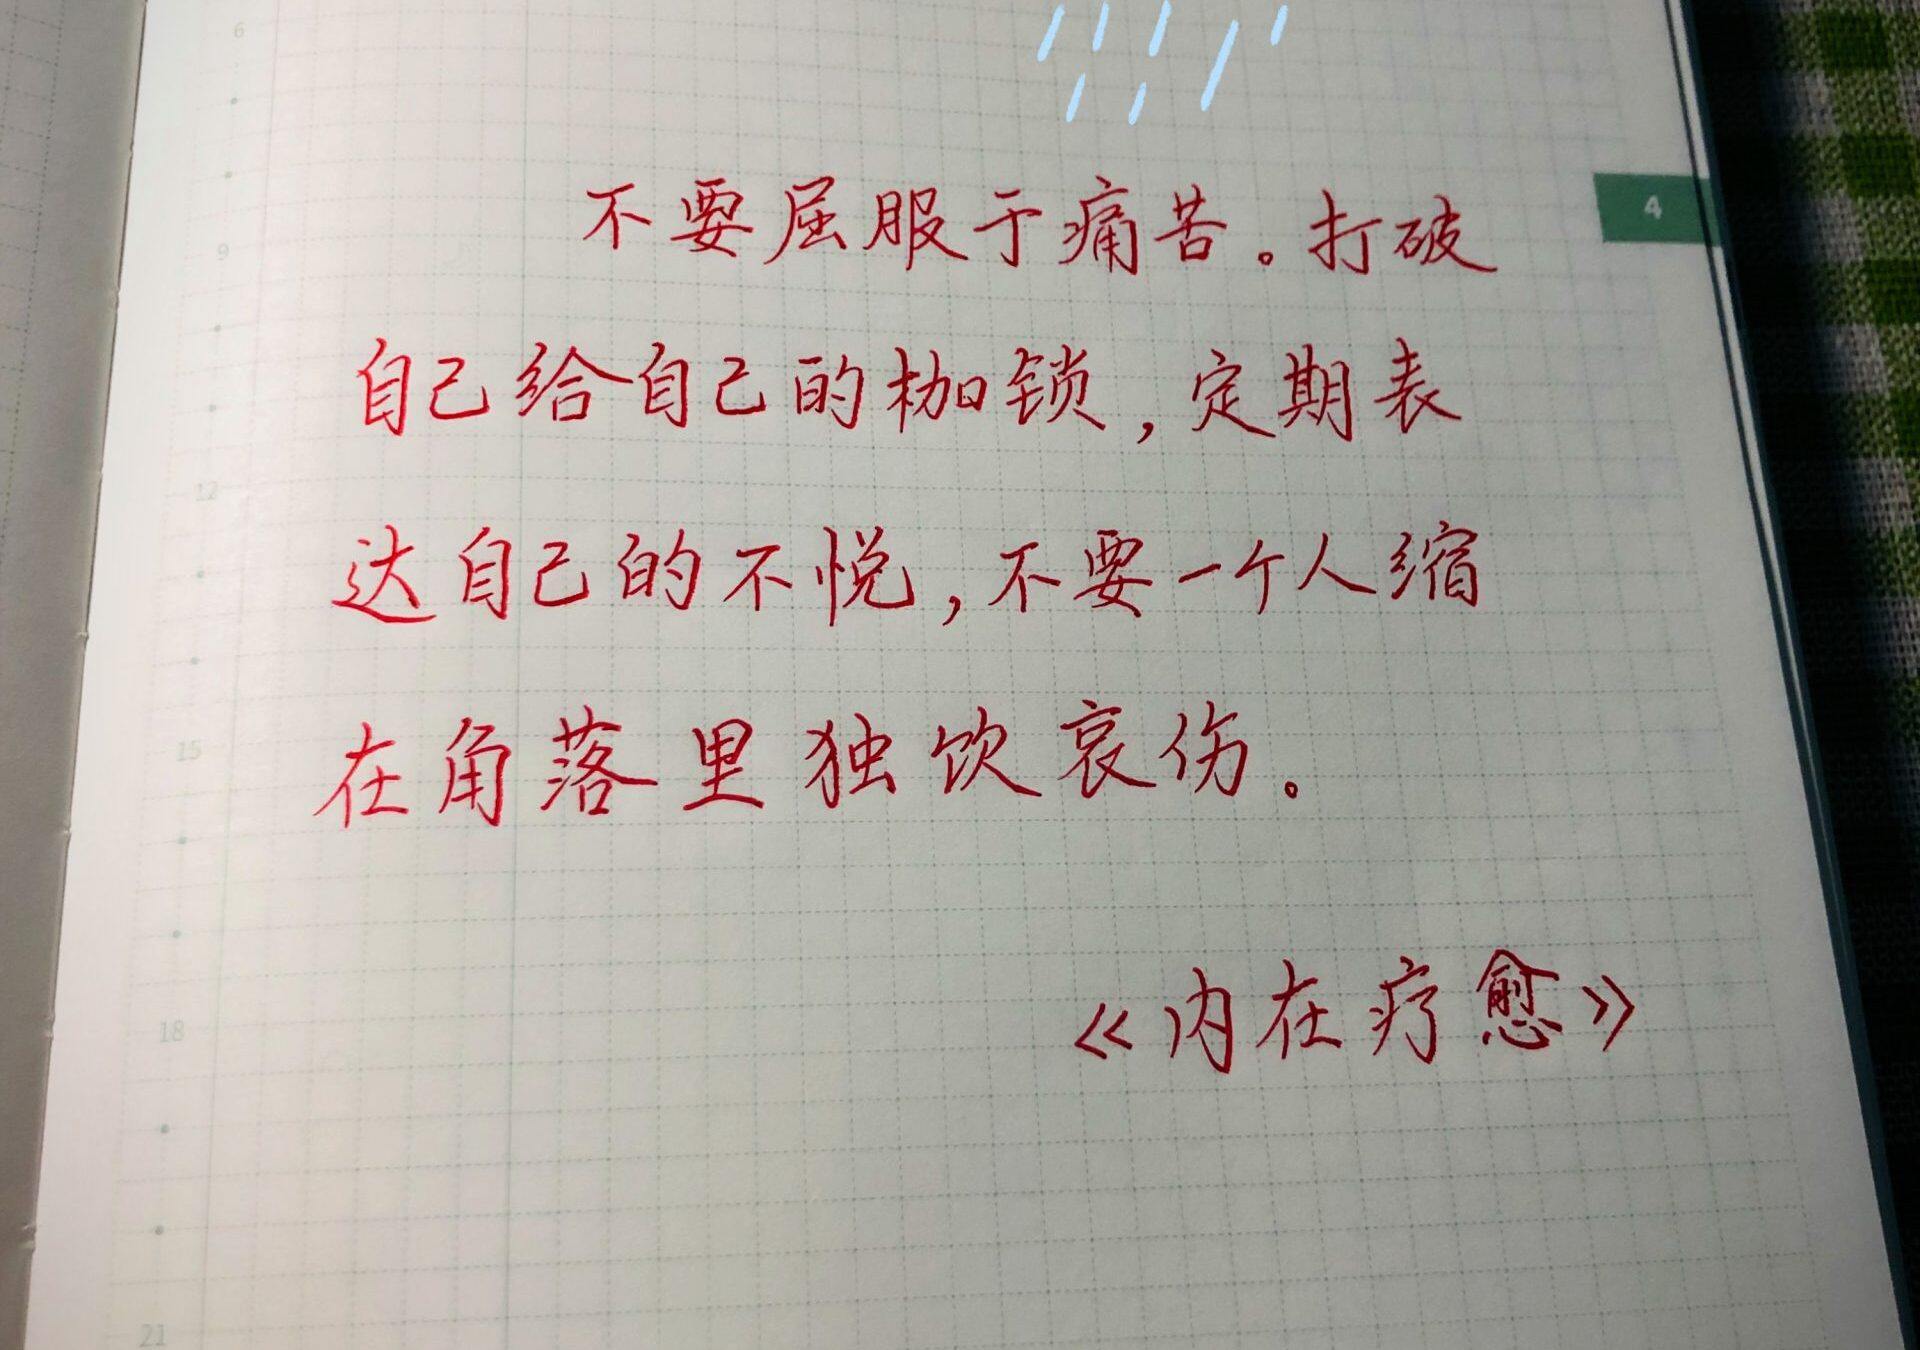 不要屈服于痛苦。打破
自己给自己的枷锁,定期表
达自己的不悦,不要一个人缩
在角落里独饮哀伤。
《内在疗愈》
4
6
9
12
15
18
21